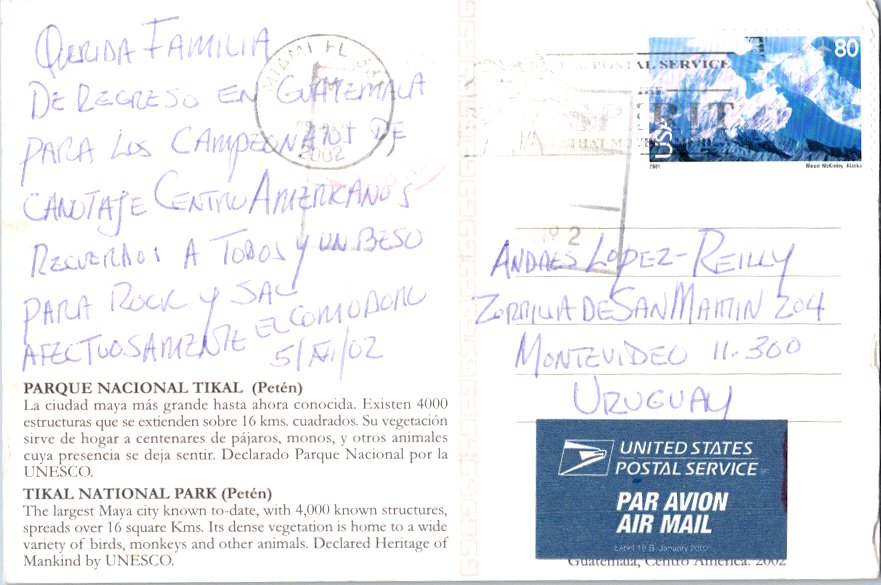 Querida Familia
De Regreso en Guatemala
para los Campeonatos de
Canotaje Centro Americanos
Recuerdos a Todos y un Beso
para Rock y Sal
Afectuosamente El Comodoro
5/XI/02
PARQUE NACIONAL TIKAL (Petén)
La ciudad maya más grande hasta ahora conocida. Existen 4000
estructuras que se extienden sobre 16 kms. cuadrados. Su vegetación
sirve de hogar a centenares de pájaros, monos, y otros animales
cuya presencia se deja sentir. Declarado Parque Nacional por la
UNESCO.
TIKAL NATIONAL PARK (Petén)
The largest Maya city known to-date, with 4,000 known structures,
spreads over 16 square Kms. Its dense vegetation is home to a wide
variety of birds, monkeys and other animals. Declared Heritage of
Mankind by UNESCO.
MIAMI FL
PM
2002
POSTAL SERVICE
80
USA
2001
Mount McKinley, Alaska
Nº 2
Andres Lopez-Reilly
Zorrilla de San Martin 204
Montevideo 11.300
Uruguay
UNITED STATES
POSTAL SERVICE
PAR AVION
AIR MAIL
Label 19 B January 2002
Guatemala, Centro America. 2002